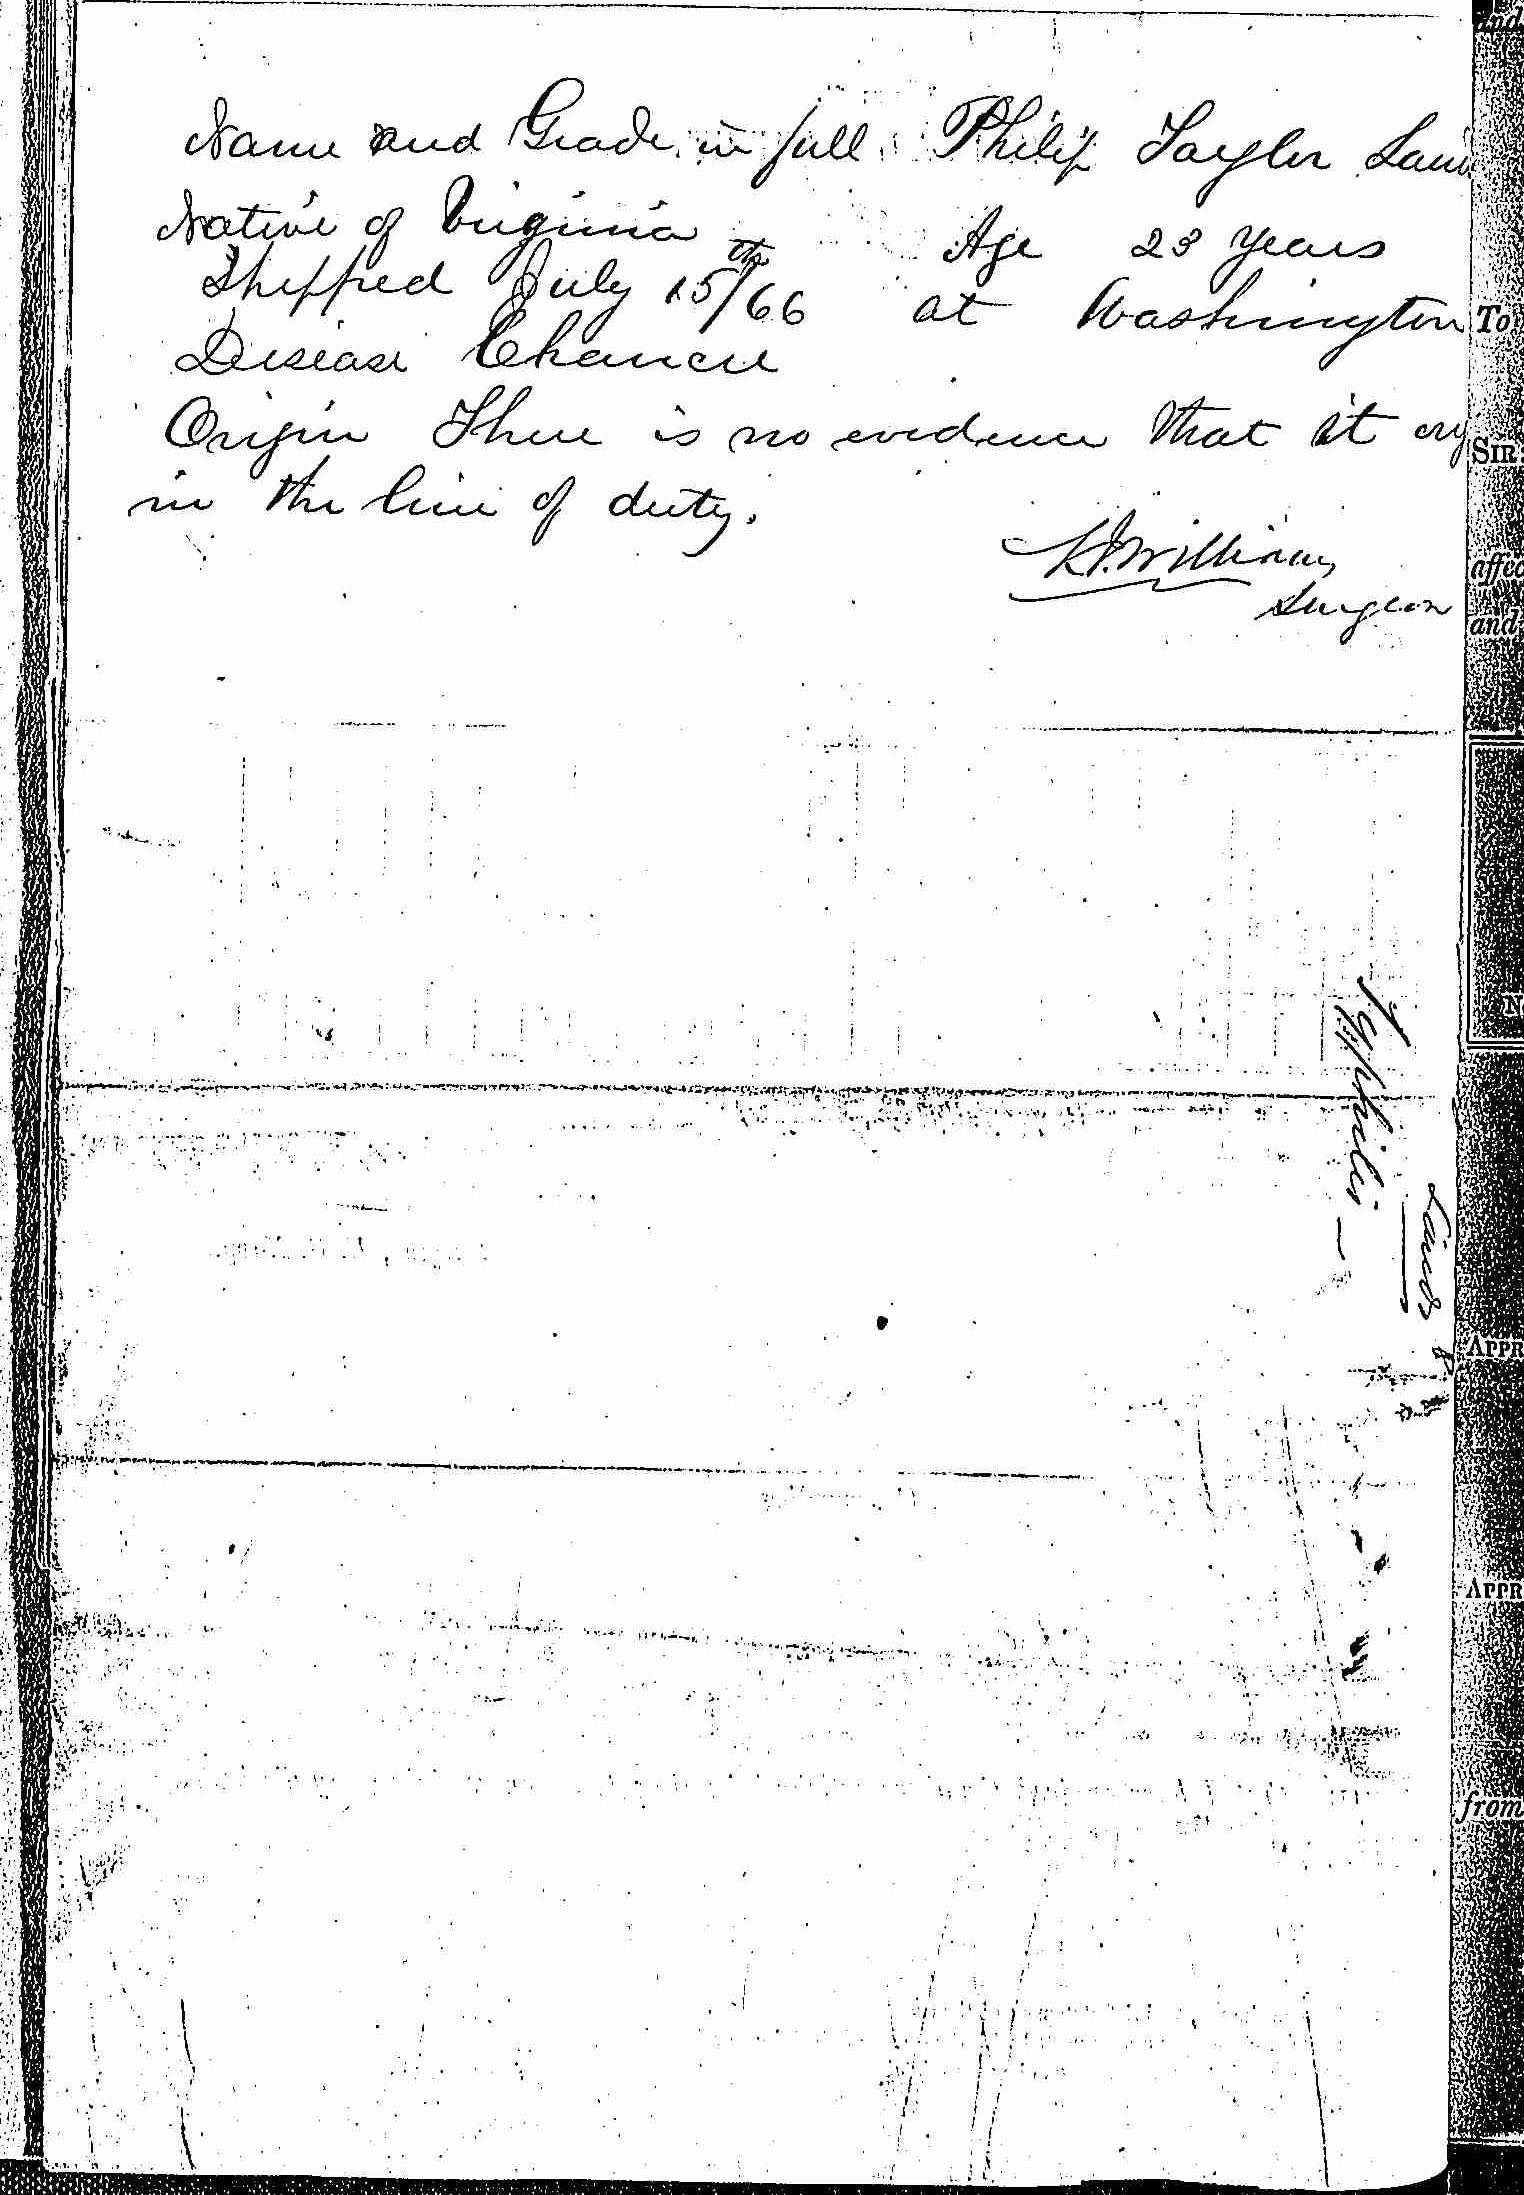 Name and Grade in full Philip Taylor
Native of Virginia Age 23 years
Shipped July 15th/66 at Washington
Disease Chancre
Origin There is no evidence that it
in the line of duty.
Williams
Surgeon
Syphilis
and
To
SIR
affec
and
N
APPR
APPR
from